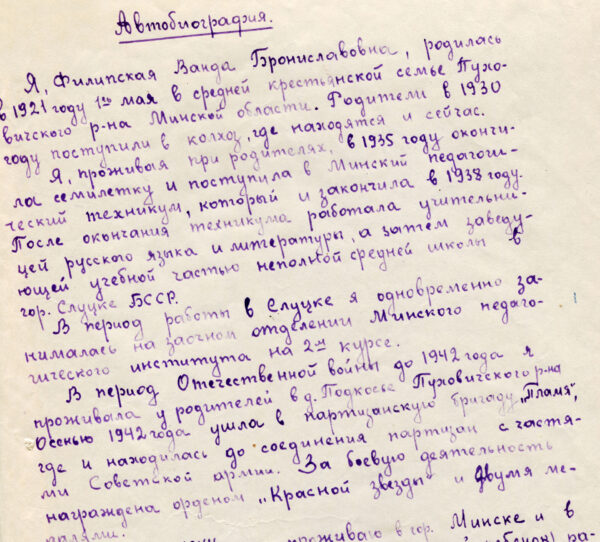 Автобиография.
Я, Филипская Ванда Брониславовна, родилась
в 1921 году 1го мая в средней крестьянской семье Пухо-
вичского р-на Минской области. Родители в 1930
году поступили в колхоз, где находятся и сейчас.
Я, проживая при родителях, в 1935 году окончи-
ла семилетку и поступила в Минский педагоги-
ческий техникум, который и закончила в 1938 году.
После окончания техникума работала учительни-
цей русского языка и литературы, а затем заведу-
ющей учебной частью неполной средней школы в
гор. Слуцке БССР.
В период работы в Слуцке я одновременно за-
нималась на заочном отделении Минского педаго-
гического института на 2м курсе.
В период Отечественной войны до 1942 года я
проживала у родителей в д. Подкосье Пуховичского р-на
Осенью 1942 года ушла в партизанскую бригаду „Пламя",
где и находилась до соединения партизан с частя-
ми Советской армии. За боевую деятельность
награждена орденом „Красной звезды" и двумя ме-
далями.
проживаю в гор. Минске и в
ра-